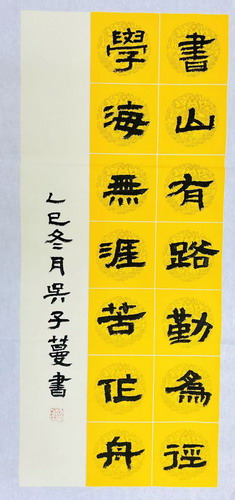 書山有路勤為徑
學海無涯苦作舟
乙巳冬月吳子蔓書